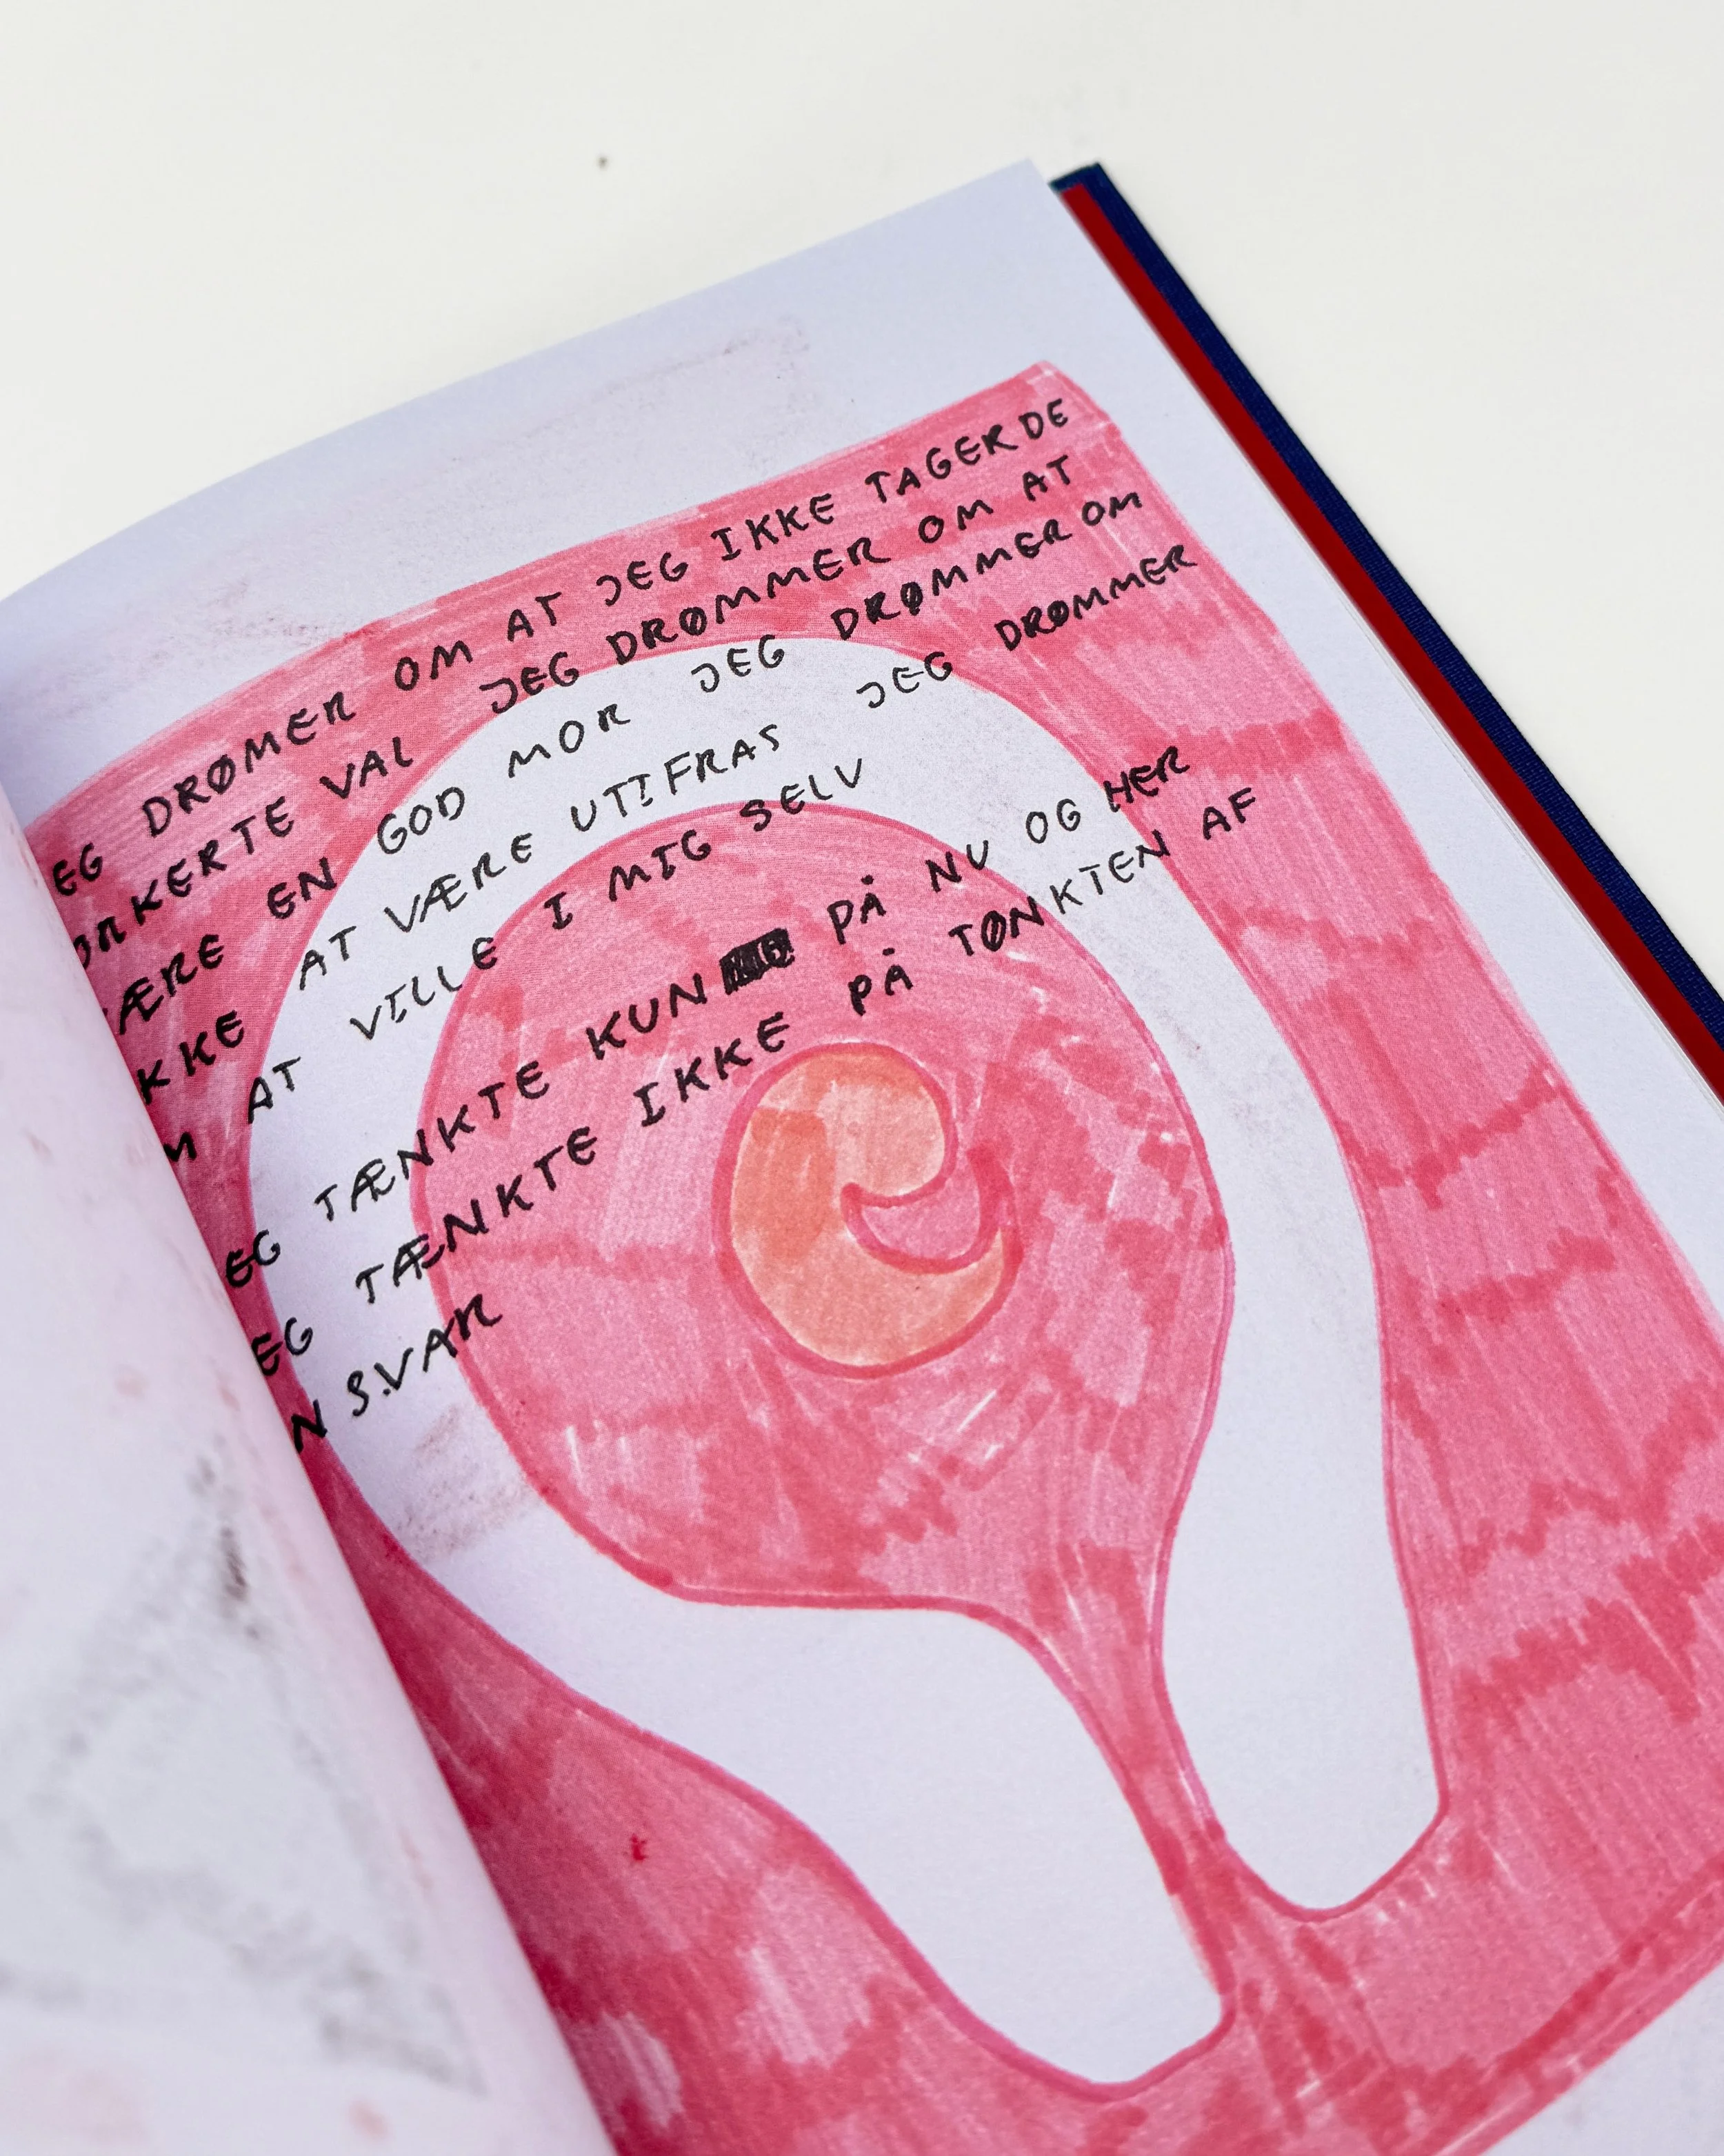 EG DRØMER OM AT JEG IKKE TAGER DE
ORKERTE VAL JEG DRØMMER OM AT
ÆRE EN GOD MOR JEG DRØMMER OM
KKE AT VÆRE UTIFRAS JEG DRØMMER
M AT VILLE I MIG SELV
EG TÆNKTE KUN PÅ NU OG HER
EG TÆNKTE IKKE PÅ TØNKTEN AF
N SVAR